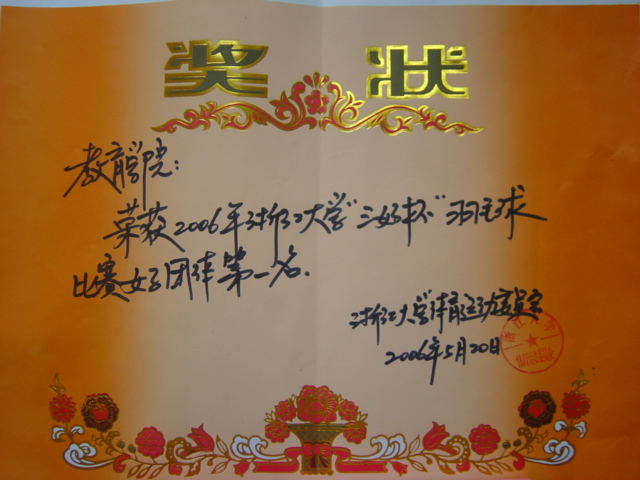 奖 状
教育学院：
荣获2006年浙江大学“三好杯”羽毛球
比赛女子团体第一名.
浙江大学体育运动委员会
2006年5月20日